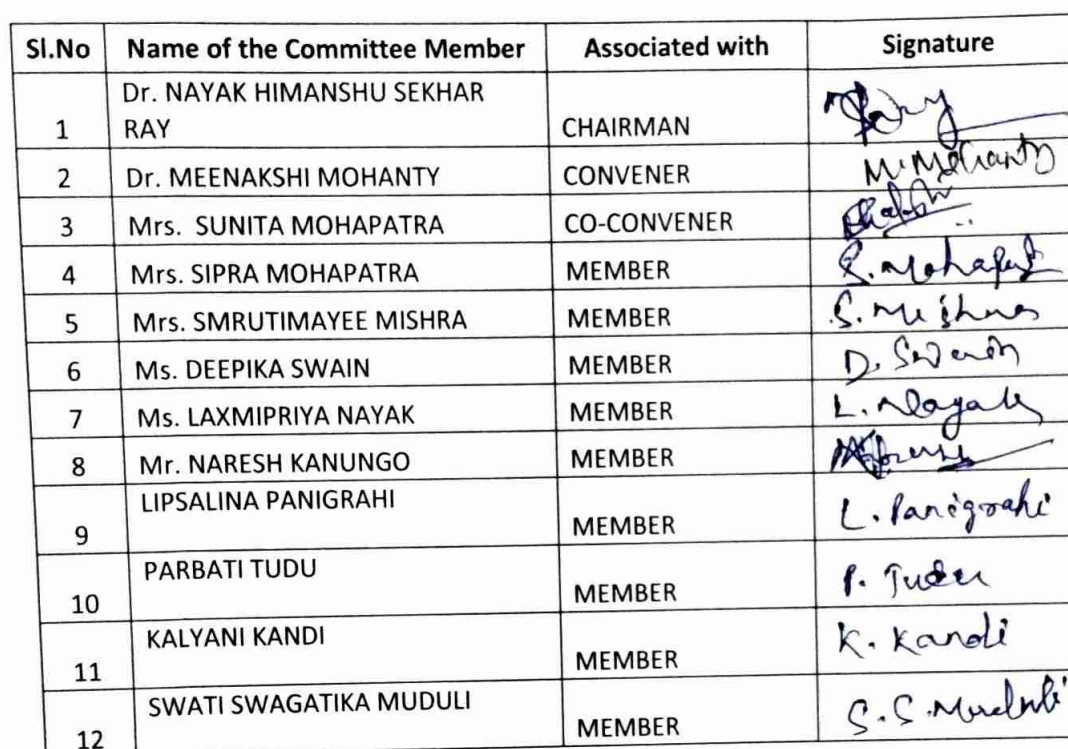 Sl.No Name of the Committee Member Associated with Signature
Dr. NAYAK HIMANSHU SEKHAR
1 RAY CHAIRMAN
2 Dr. MEENAKSHI MOHANTY CONVENER M. Mohanty
3 Mrs. SUNITA MOHAPATRA CO-CONVENER
4 Mrs. SIPRA MOHAPATRA MEMBER S. Mohapat
5 Mrs. SMRUTIMAYEE MISHRA MEMBER S. Mishra
6 Ms. DEEPIKA SWAIN MEMBER D. Swain
7 Ms. LAXMIPRIYA NAYAK MEMBER L. Nayak
8 Mr. NARESH KANUNGO MEMBER
LIPSALINA PANIGRAHI
9 MEMBER L. Panigrahi
PARBATI TUDU
10 MEMBER P. Tudu
KALYANI KANDI
11 MEMBER K. Kandi
SWATI SWAGATIKA MUDULI
12 MEMBER S. S. Muduli